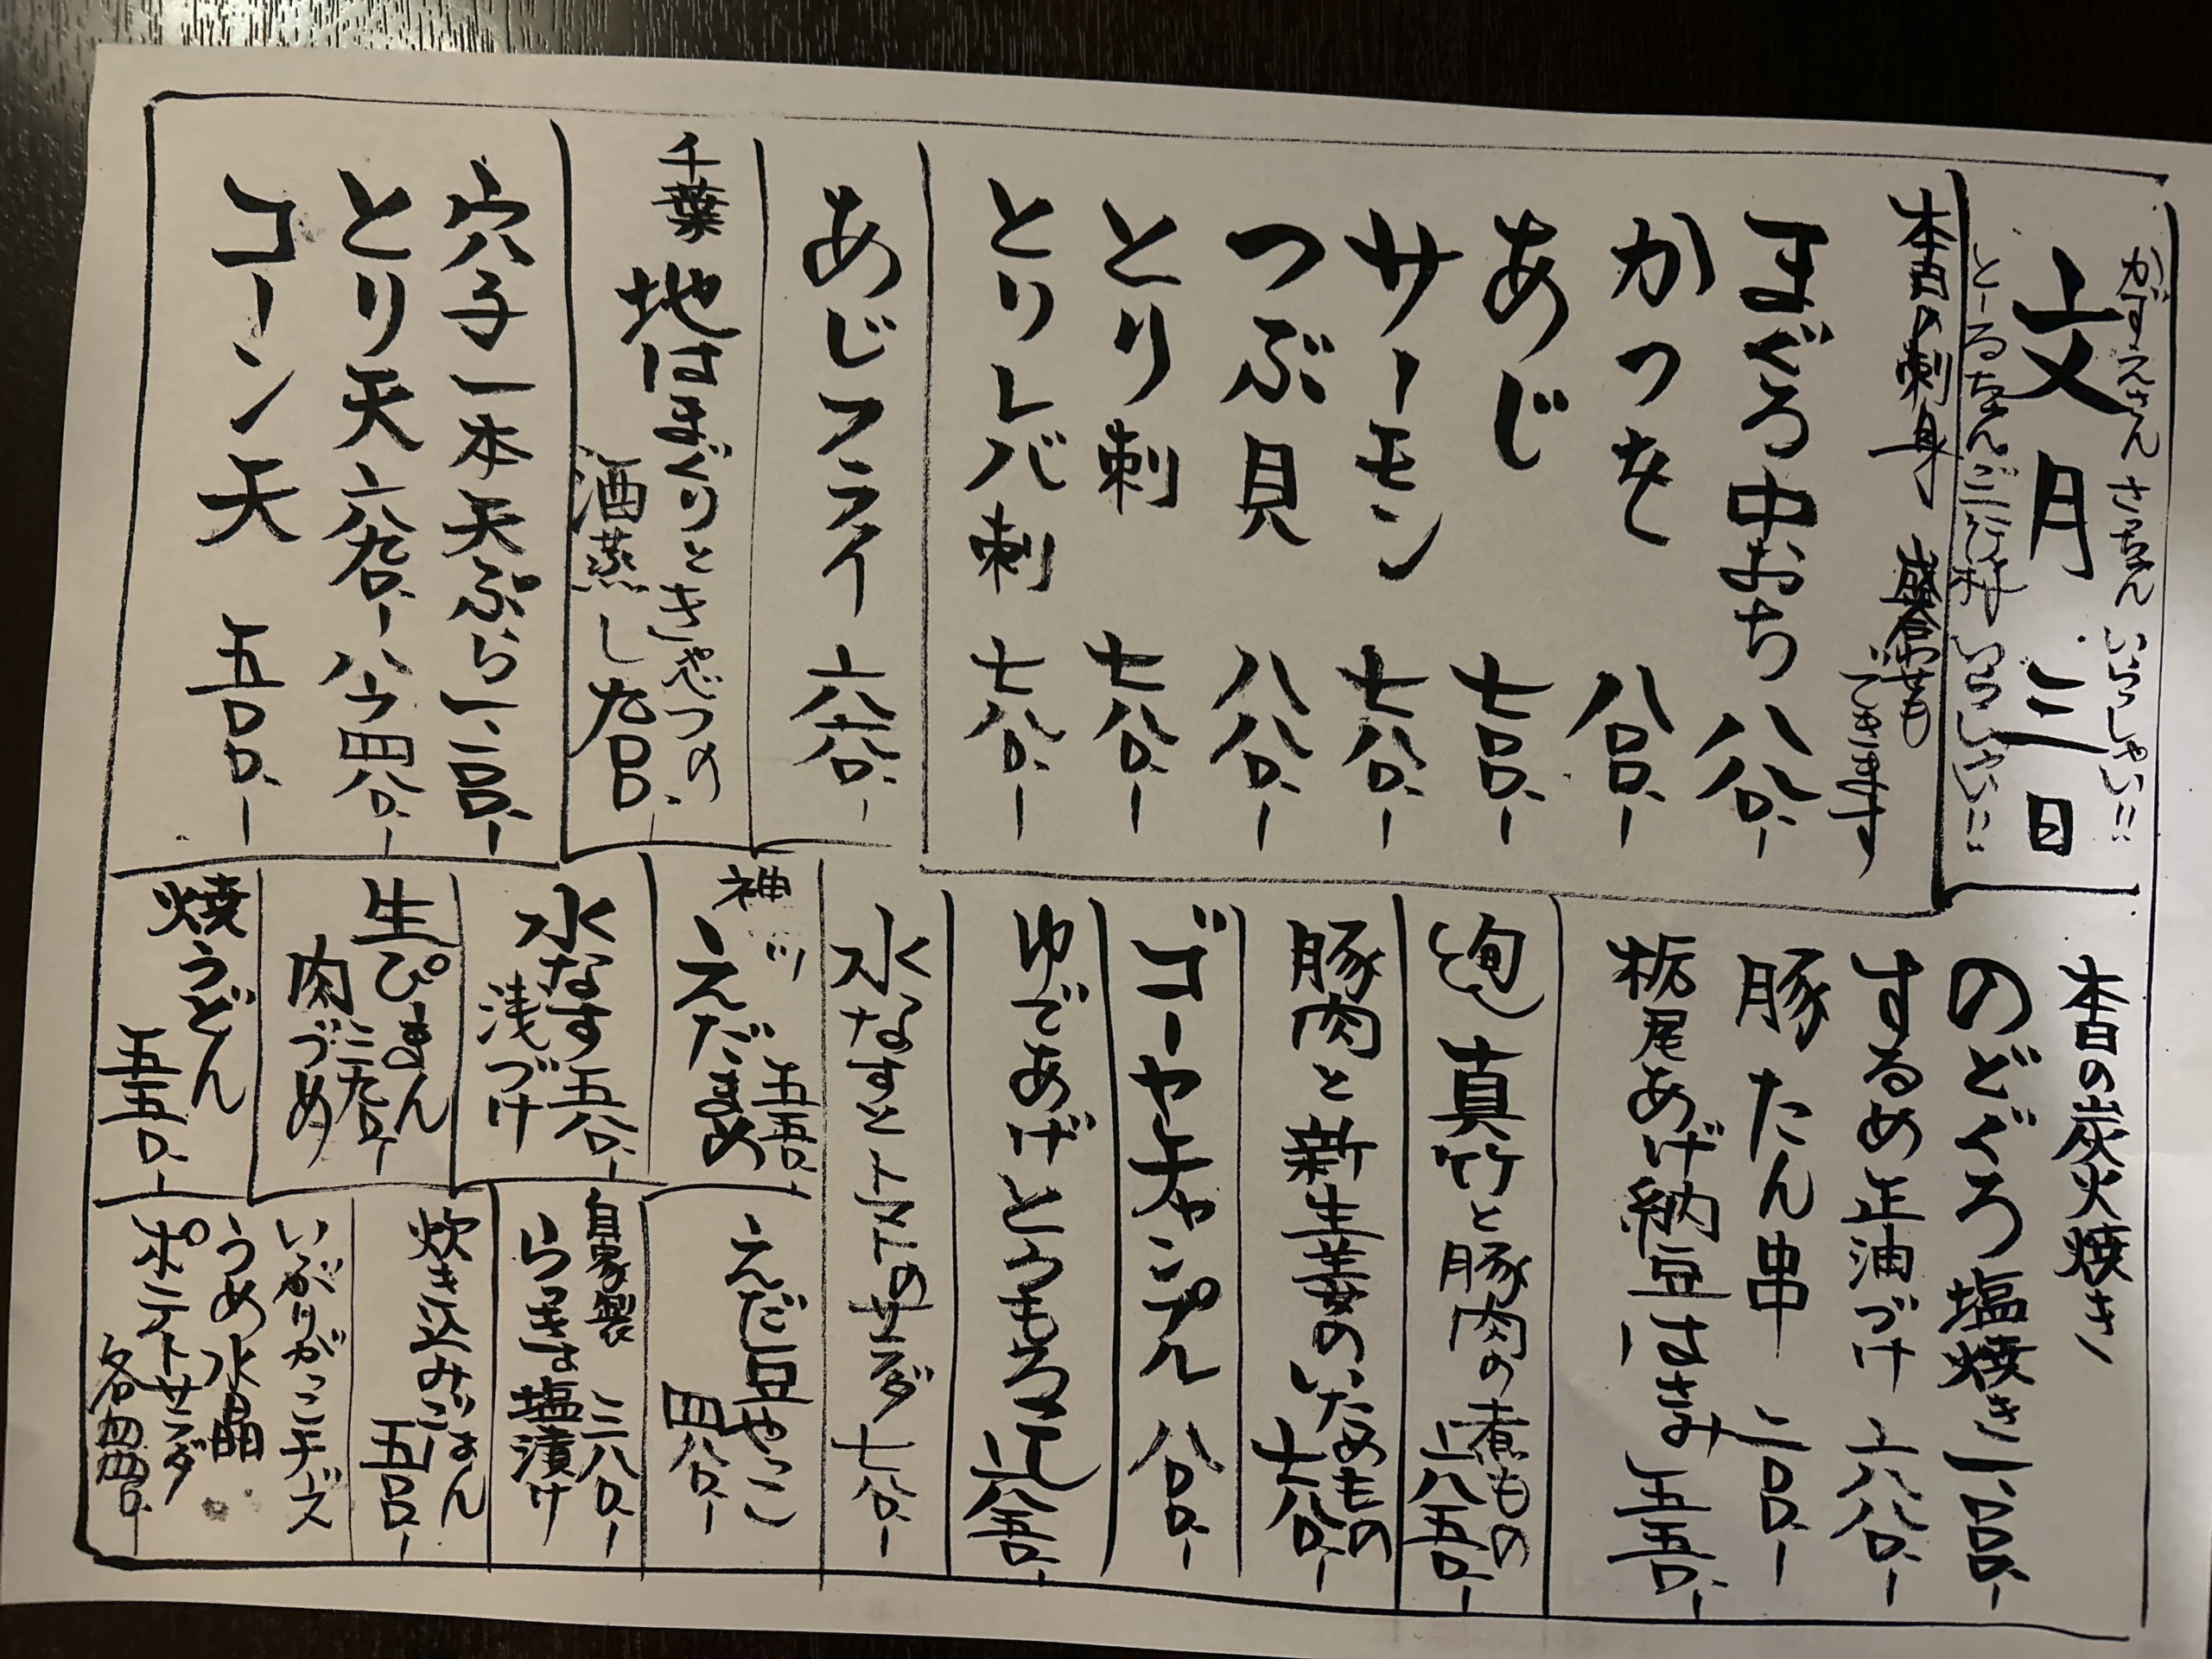 かずえさん さっちゃん いらっしゃい!!
文月三日
とーるちゃん いらっしゃい!!
本日の刺身
できます
まぐろ中おち 八八〇.ー
かつを 八八〇.ー
あじ 七八〇.ー
サーモン 七八〇.ー
つぶ貝 八八〇.ー
とり刺 七八〇.ー
とりレバ刺 七八〇.ー
あじフライ 六八〇.ー
千葉 地はまぐりときゃべつの
酒蒸し
穴子一本天ぷら
とり天 六九〇.ー ハーフ四八〇.ー
コーン天 五〇〇.ー
本日の炭火焼き
のどぐろ塩焼き
するめ正油づけ 六八〇.ー
豚たん串 二〇〇.ー
栃尾あげ納豆はさみ 五五〇.ー
旬 真竹と豚肉の煮もの
豚肉と新生姜のいためもの 七八〇.ー
ゴーヤチャンプル 八〇〇.ー
ゆであげとうもろこし
水なすとトマトのサラダ 七八〇.ー
えだまめ 五五〇.ー
水なす 五八〇.ー
浅づけ
生ぴーまん
肉づめ 三九〇.ー
焼うどん
五五〇.ー
えだ豆やっこ
四八〇.ー
自家製 三八〇.ー
らっきょ塩漬け
炊き込みごはん
五〇〇.ー
いぶりがっこチーズ
うめ水晶
ポテトサラダ